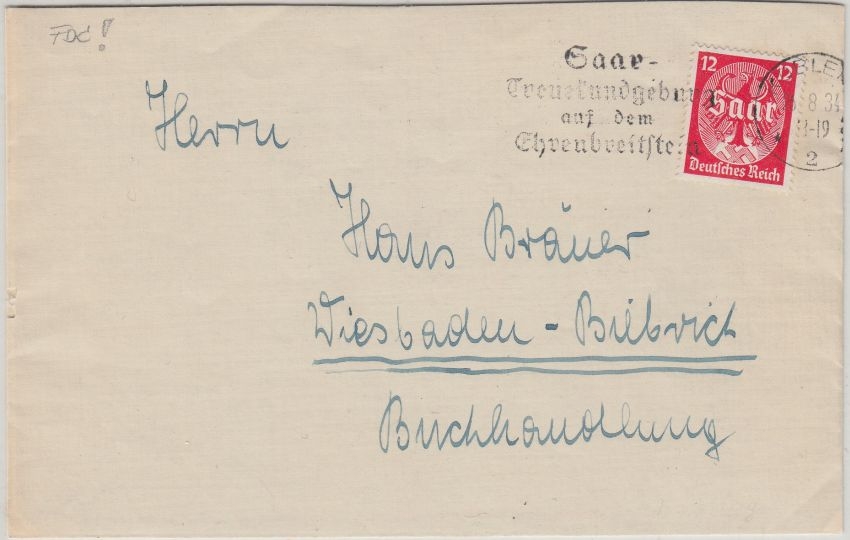 FDC!
Saar-
Treuekundgebung
auf dem
Ehrenbreitstein
12 12
Saar
Deutsches Reich
BLEN
8 34
-19
2
Herrn
Hans Bräuer
Wiesbaden - Biebrich
Buchhandlung